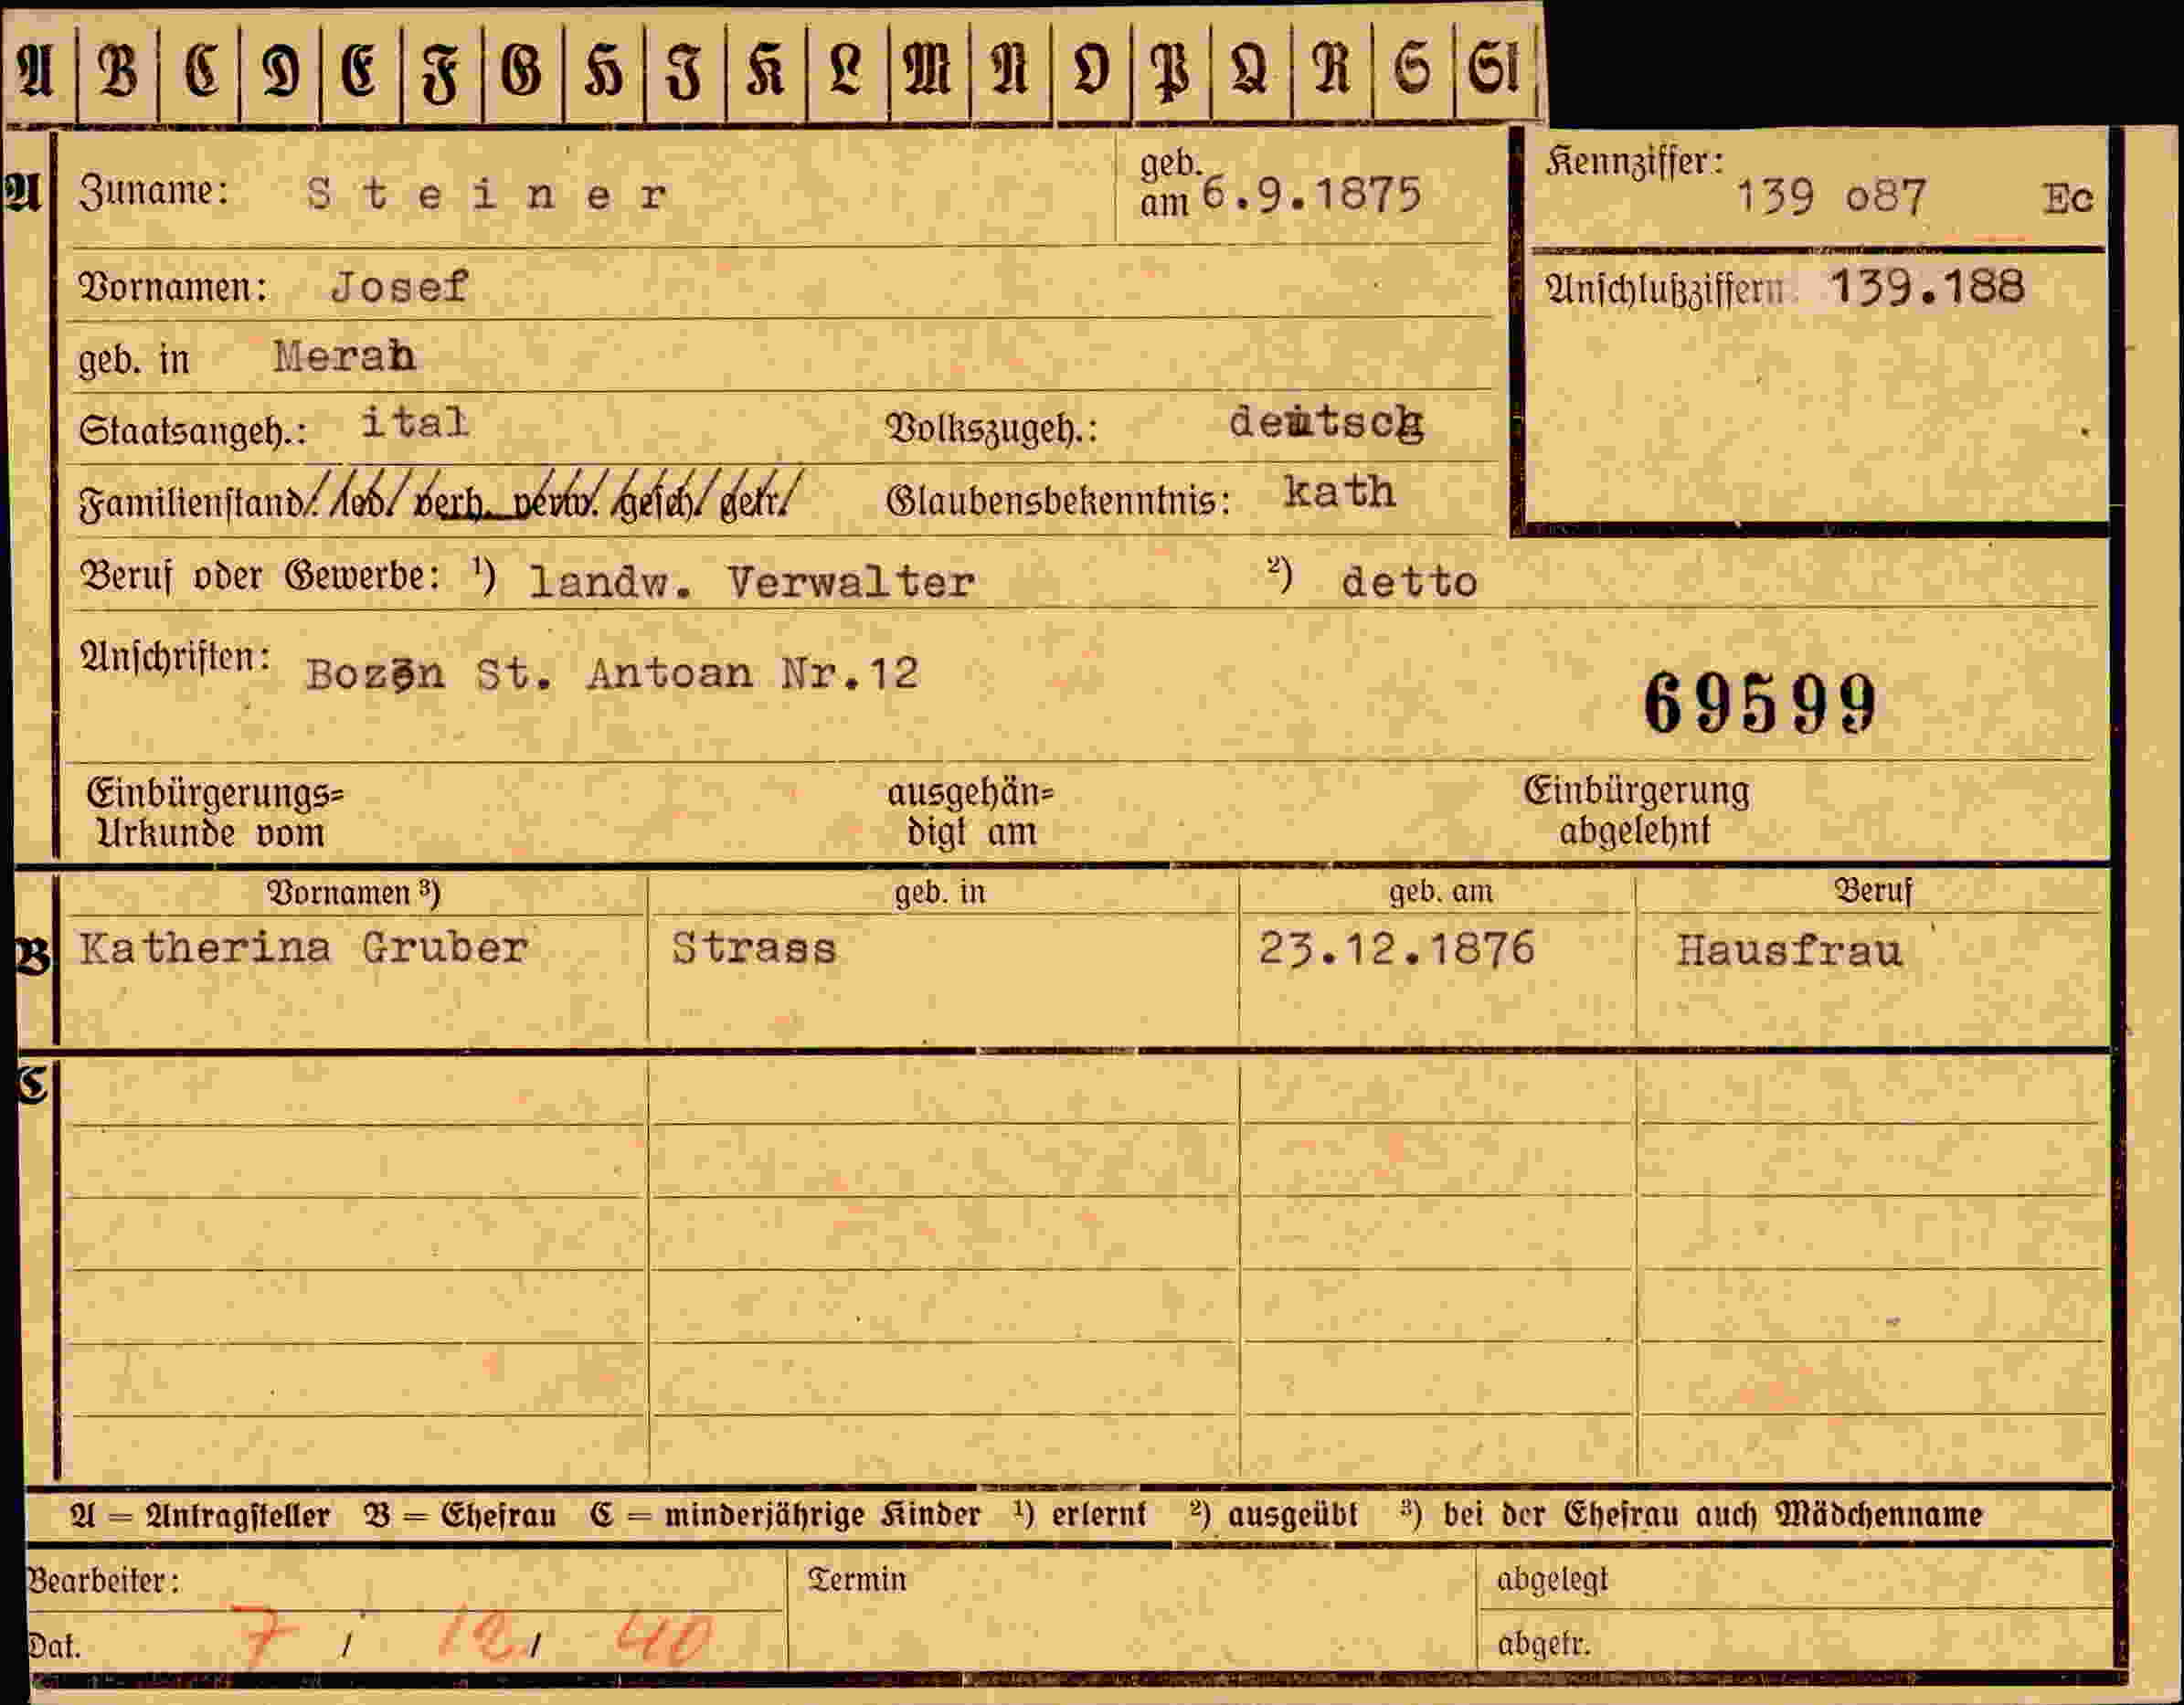 A B C D E F G H I K L M N O P Q R S St
A Zuname: Steiner geb. am 6.9.1875 Kennziffer: 139 o87 Ec
Vornamen: Josef Anschlußziffern 139.188
geb. in Meran
Staatsangeh.: ital Volkszugeh.: deutsch
Familienstand: led. verh. verw. gesch. getr. Glaubensbekenntnis: kath
Beruf oder Gewerbe: ¹) landw. Verwalter ²) detto
Anschriften: Bozen St. Antoan Nr.12
69599
Einbürgerungs= ausgehän= Einbürgerung
Urkunde vom digt am abgelehnt
Vornamen ³) geb. in geb. am Beruf
B Katherina Gruber Strass 23.12.1876 Hausfrau
C
A = Antragsteller B = Ehefrau C = minderjährige Kinder ¹) erlernt ²) ausgeübt ³) bei der Ehefrau auch Mädchenname
Bearbeiter: Termin abgelegt
Dat. 7 / 12 / 40 abgetr.